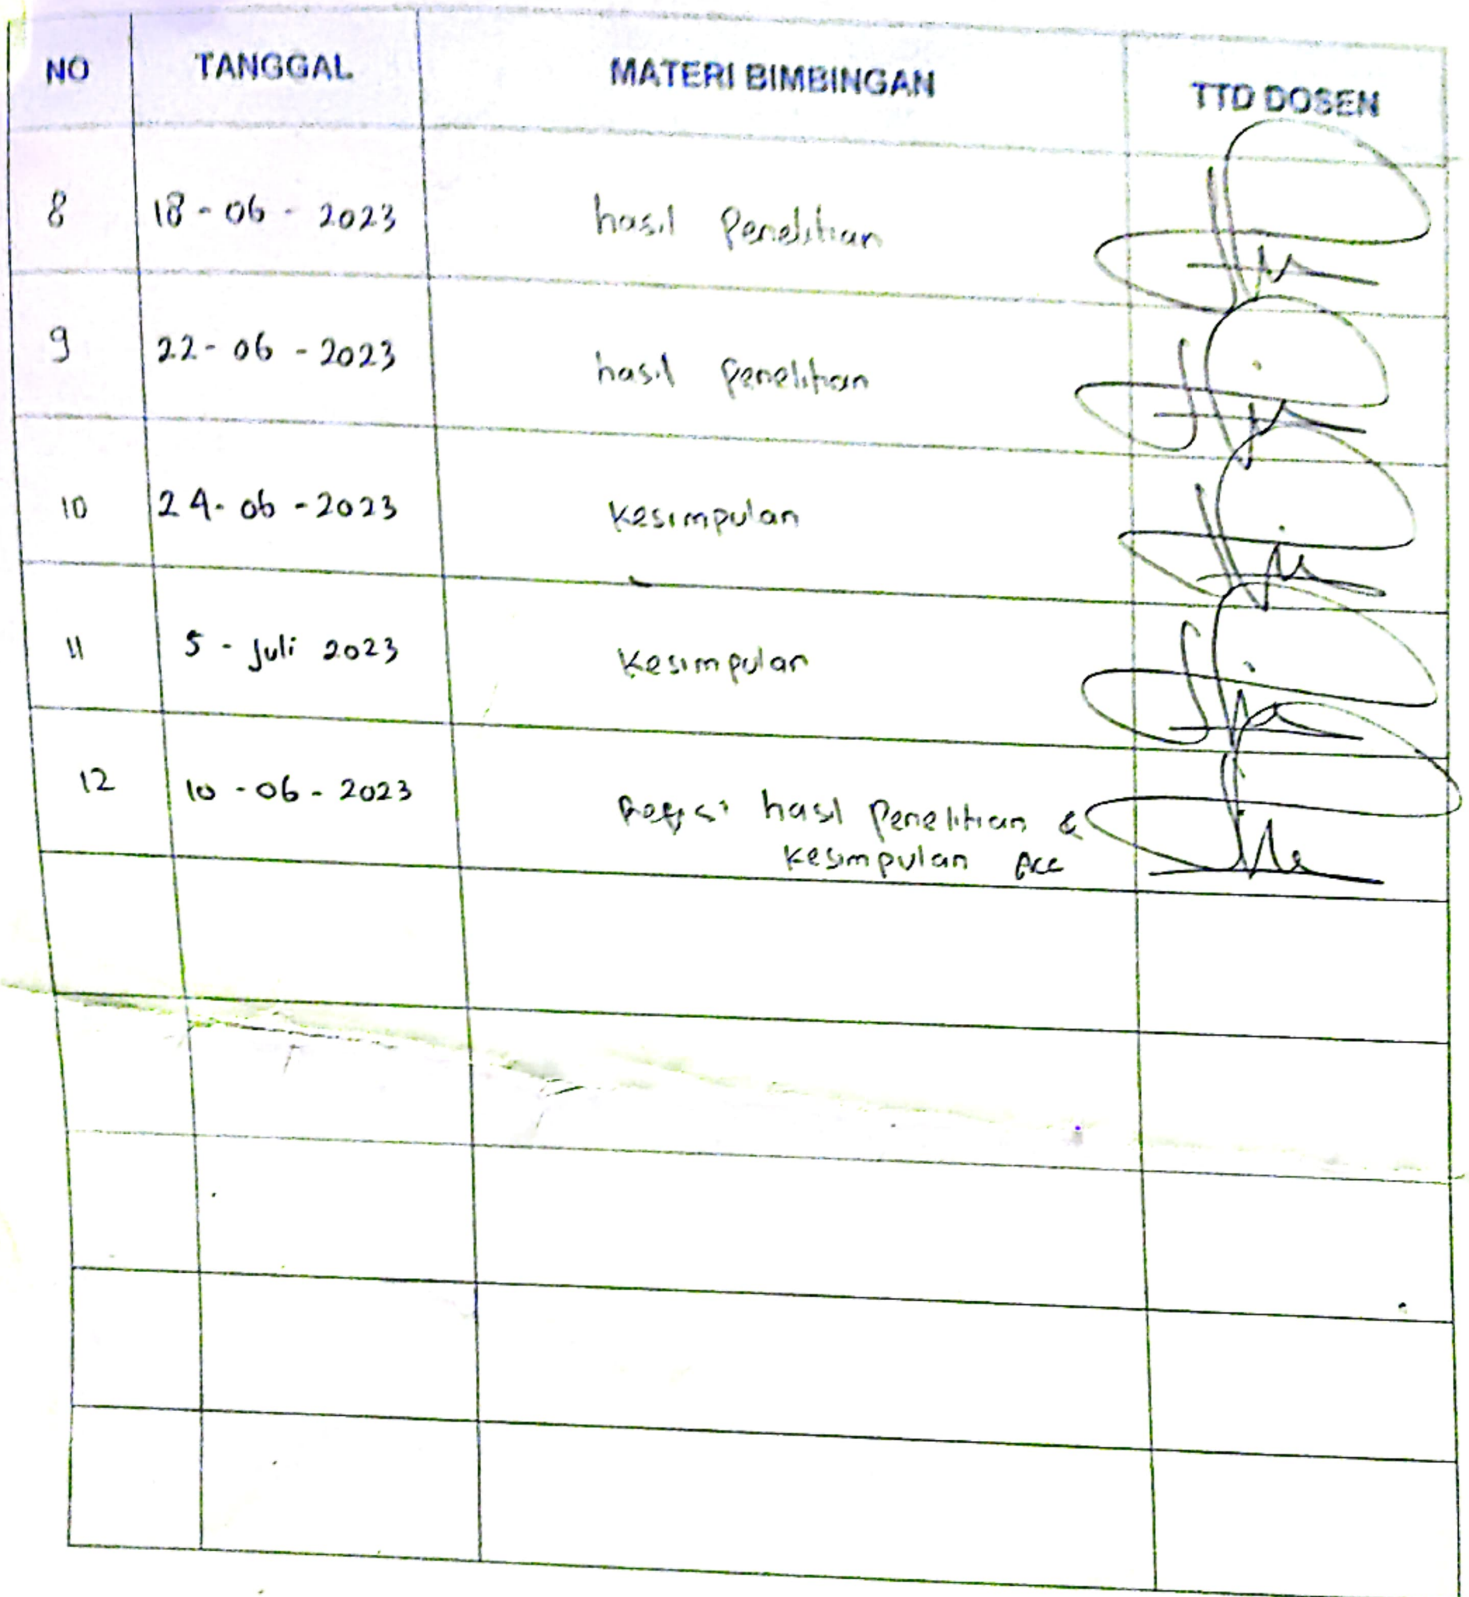 NO TANGGAL MATERI BIMBINGAN TTD DOSEN
8 18-06-2023 hasil Penelitian
9 22-06-2023 hasil Penelitian
10 24-06-2023 Kesimpulan
11 5-Juli 2023 Kesimpulan
12 10-06-2023 hasil Penelitian &
Kesimpulan Acc